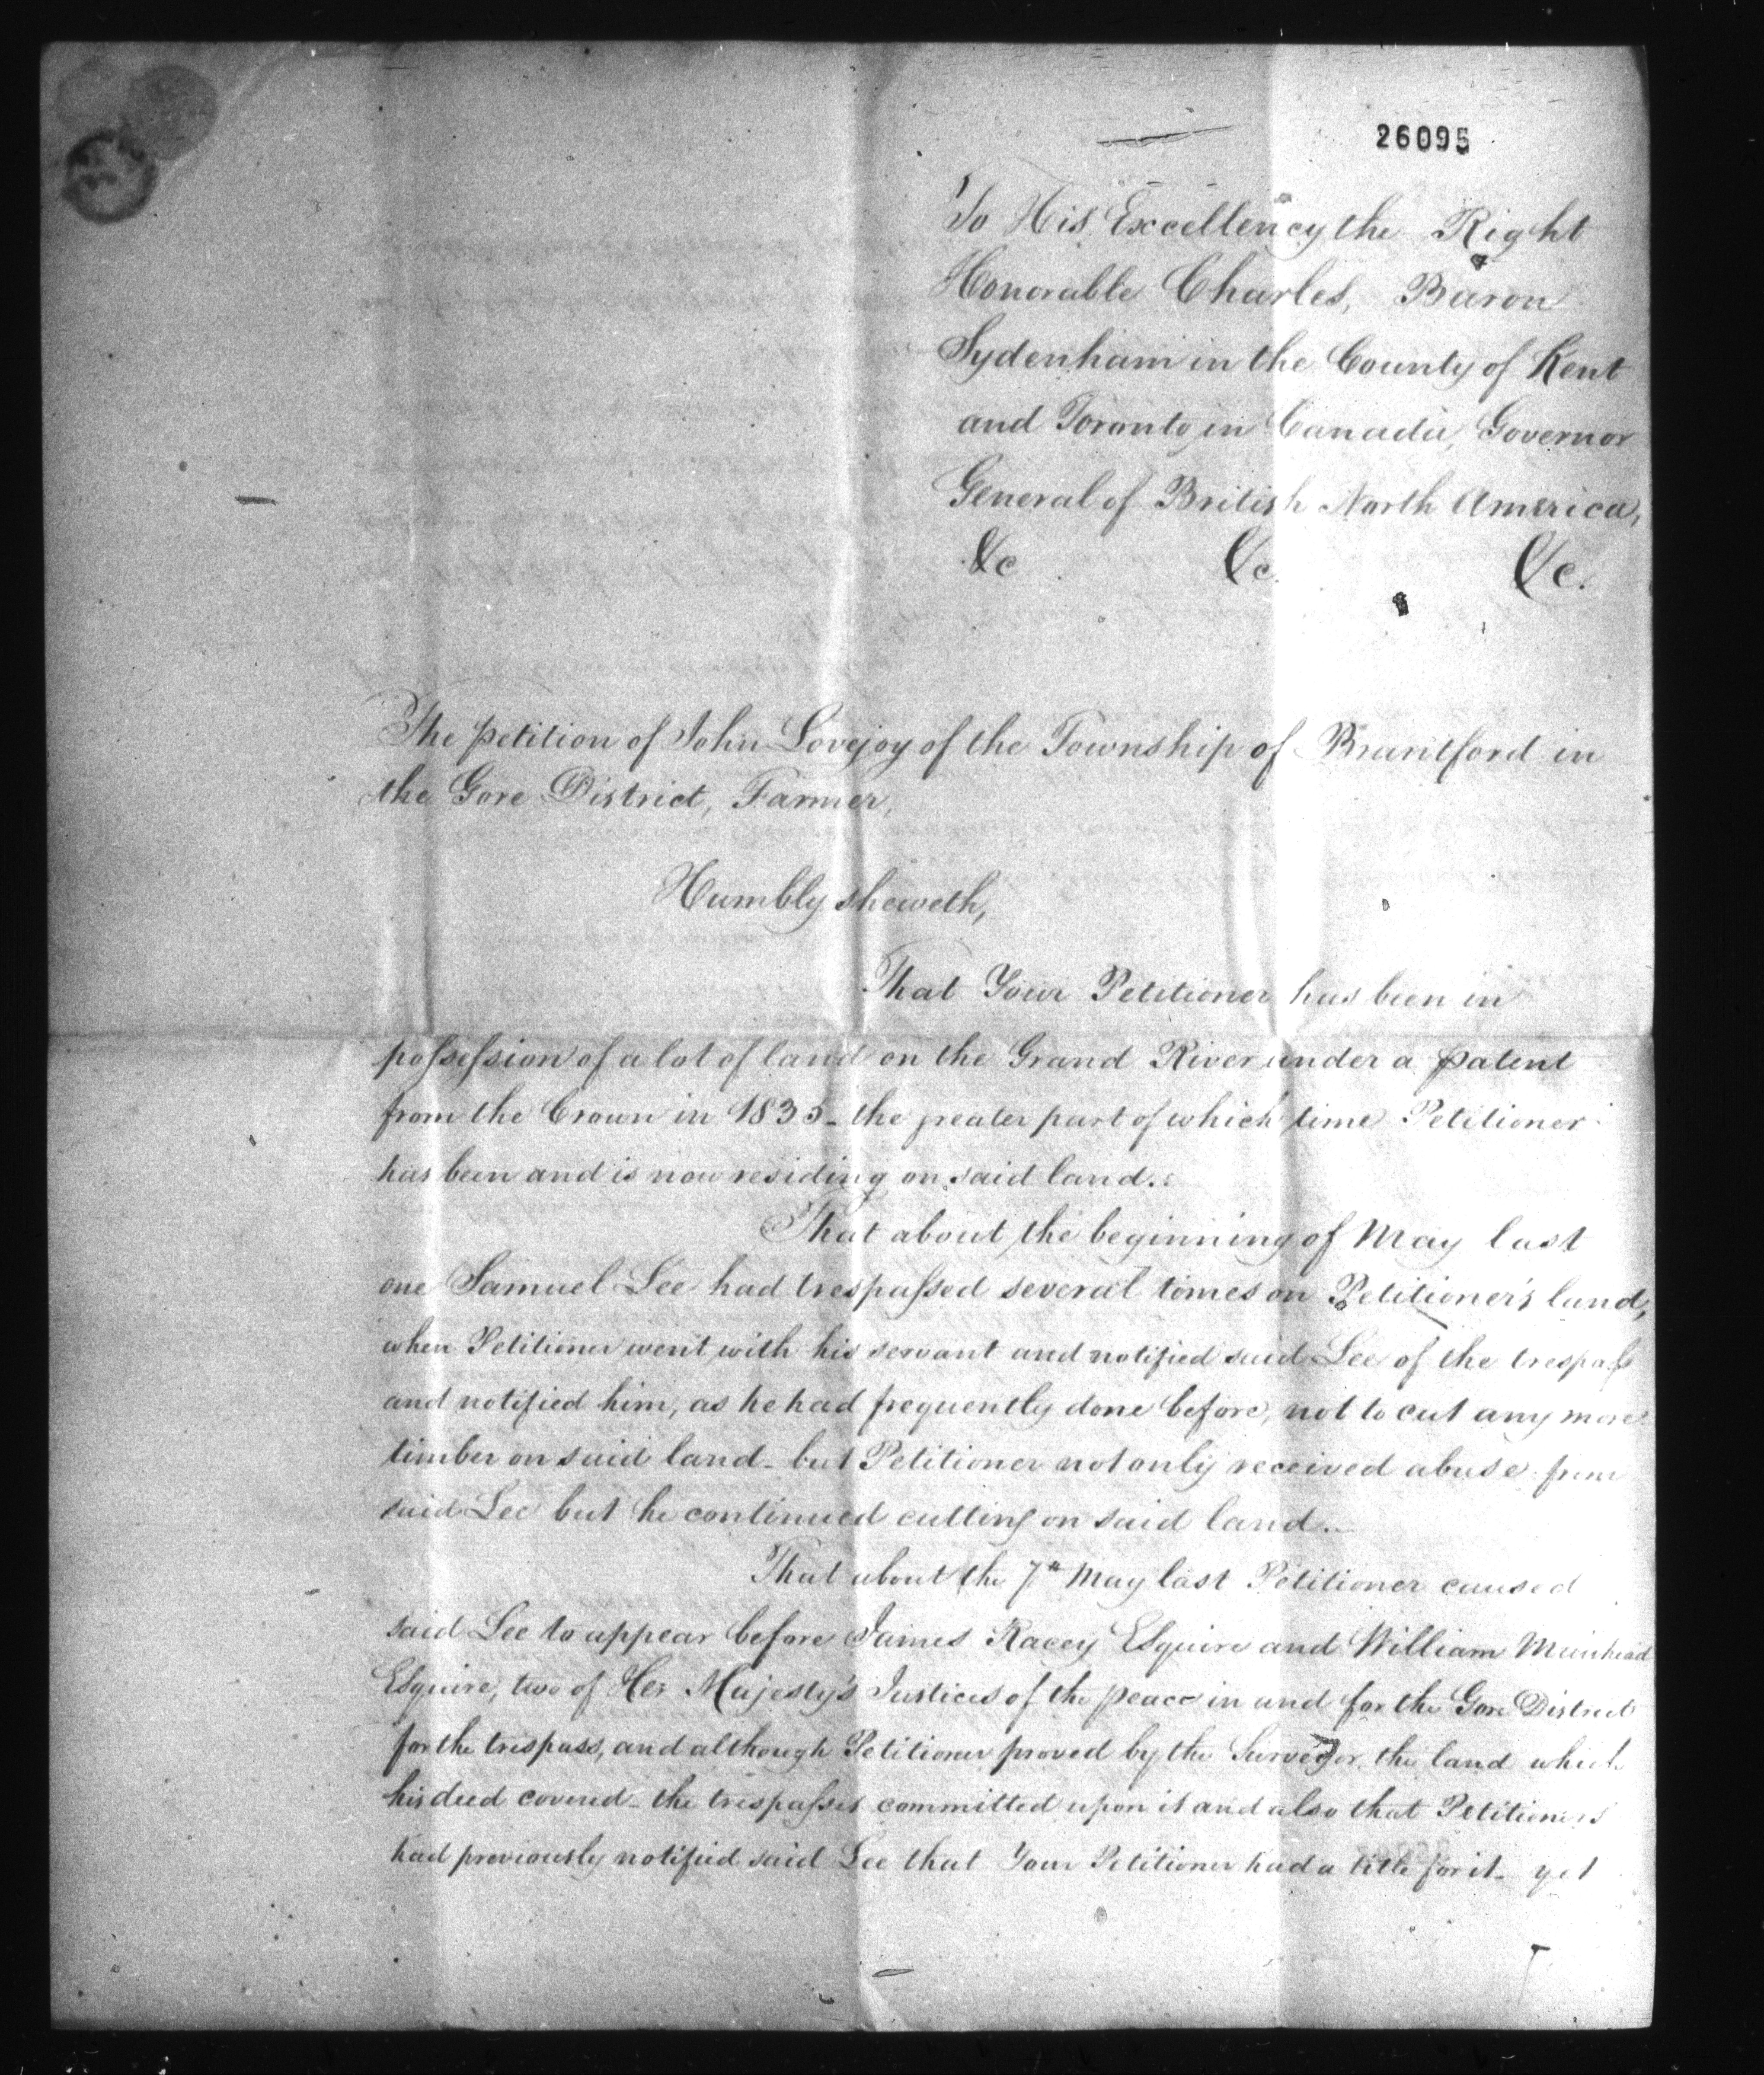 26095
To His Excellency the Right
Honorable Charles, Baron
Sydenham in the County of Kent
and Toronto in Canada, Governor
General of British North America,
&c &c. &c.
The petition of John Lovejoy of the Township of Brantford in
the Gore District, Farmer,
Humbly sheweth,
That Your Petitioner has been in
possession of a lot of land on the Grand River under a patent
from the Crown in 1835 - the greater part of which time Petitioner
has been and is now residing on said land.
That about the beginning of May last
one Samuel Lee had trespassed several times on Petitioner's land,
when Petitioner went with his servant and notified said Lee of the trespass
and notified him, as he had frequently done before, not to cut any more
timber on said land - but Petitioner not only received abuse from
said Lee but he continued cutting on said land.
That about the 7th May last Petitioner caused
said Lee to appear before James Racey Esquire and William Muirhead
Esquire, two of Her Majesty's Justices of the peace in and for the Gore District
for the trespass, and although Petitioner proved by the Surveyor, the land which
his deed covered - the trespasses committed upon it and also that Petitioners
had previously notified said Lee that Your Petitioner had a title for it - yet